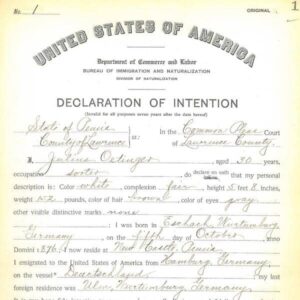 No. 1
ORIGINAL
1
UNITED STATES OF AMERICA
Department of Commerce and Labor
BUREAU OF IMMIGRATION AND NATURALIZATION
DIVISION OF NATURALIZATION
DECLARATION OF INTENTION
(Invalid for all purposes seven years after the date hereof)
State of
County of Lawrence ss: In the Common Pleas Court of Lawrence County.
I, Julius aged 30 years,
occupation sorter do declare on oath that my personal
description is: Color white, complexion fair, height 5 feet 8 inches,
weight lbs, color of hair brown, color of eyes gray
other visible distinctive marks none
I was born in
Germany on the fifth day of October, anno
Domini; I now reside at New
I emigrated to the United States of America from Hamburg Germany
on the vessel; my last
foreign residence was Germany.